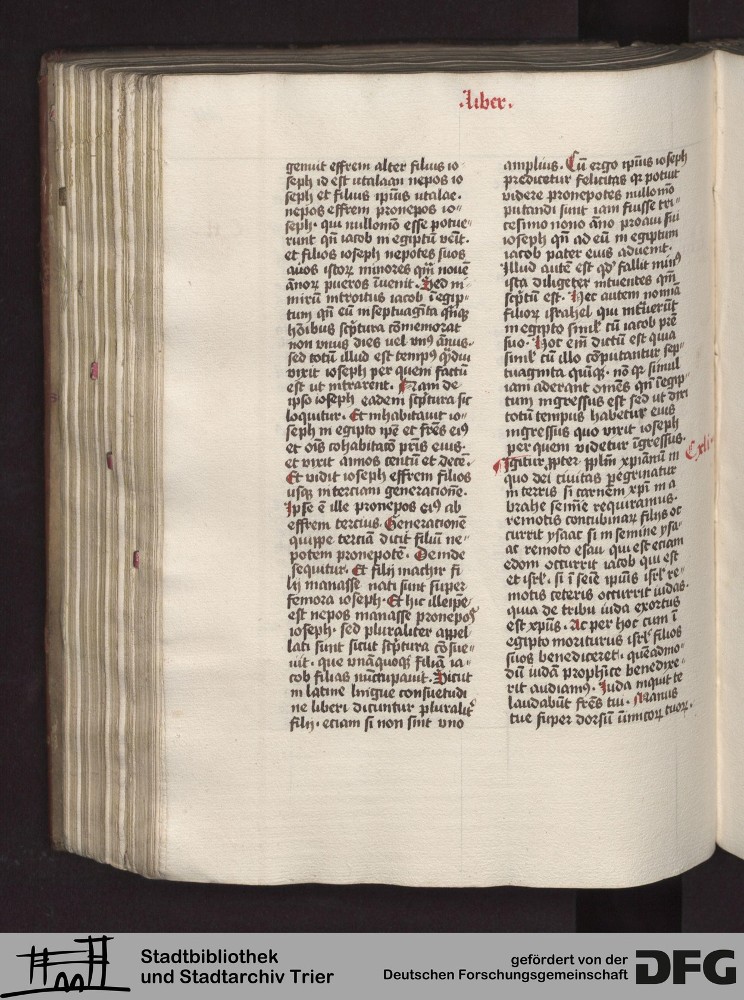 .Liber.
genuit effrem alter filius io
seph id est utalaan nepos io
seph et filius ipīus utalae.
nepos effrem pronepos io-
seph. qui nullomō esse potue-
runt qn̄ iacob in egiptū veīt.
et filios ioseph nepotes suos
auos istoꝝ minores qm̄ nouē
ānoꝝ pueros īuenit. Sed ni-
mirū introitus iacob ī egip-
tum qn̄ eū in septuagīta qīqꝫ
hōibus scp̄tura cōmemorat
non unius dies vel unꝰ ānus.
sed totū illud est tempꝰ qᵃdiu
vixit ioseph per quem factū
est ut intrarent. Nam de
ipso ioseph eadem scp̄tura sic
loquitur. Et inhabitauit io-
seph in egipto ip̄e et fr̄es eiꝰ
et oīs cohabitatō pr̄is eius.
et vixit annos centū et decē.
Et vidit ioseph effrem filios
usqꝫ in terciam generacionē.
Ipse ē ille pronepos eiꝰ ab
effrem tercius. Generacionē
quippe terciā dicit filiū ne-
potem pronepotē. Deinde
sequitur. Et filij machir fi
lij manasse nati sunt super
femora ioseph. Et hic ille ip̄e
est nepos manasse pronepos
ioseph. sed pluraliter appel
lati sunt sicut scp̄tura cōsue-
uit. que unāquoqꝫ filiā ia-
cob filias nūcupauit. Sicut
in latine lingue consuetudi
ne liberi dicuntur pluralit̄
filij. eciam si non sint uno
amplius. Cū ergo ip̄ius ioseph
predicetur felicitas qꝛ potuit
videre pronepotes nullo mō
putandi sunt iam fuisse tri-
cesimo nono āno proaui sui
ioseph qn̄ ad eū in egiptum
iacob pater eius aduenit.
Illud autē est qd̓ fallit minꝰ
ista diligēter intuentes qm̄
scp̄tū est. Hec autem nomīa
filioꝝ israhel qui intᵃuerūt
in egipto simul cū iacob pr̄e
suo. Hoc em̄ dictū est quia
simul cū illo cōputantur sep-
tuaginta quīqꝫ. nō qꝛ simul
iam aderant om̄es qn̄ ī egip-
tum ingressus est sed ut dixi
totū tempus habetur eius
ingressus quo vixit ioseph
per quem videtur īgressus.
Igitur ꝓpter pp̄lm̄ xp̄ianū in Cxli
quo dei ciuitas pegrinatur
in terris si carnem xp̄i in a
brahe semīe requiramus.
remotis concubinaꝝ filijs oc
currit ysaac si in semine ysa-
ac remoto esau qui est eciam
edom occurrit iacob qui est
et isrl̄. si ī seīe ipīus isrl̄ re-
motis ceteris occurrit iudas.
quia de tribu iuda exortus
est xp̄us. Ac per hoc cum ī
egipto moriturus isrl̄ filios
suos benediceret. quēadmo-
dū iudā proph̄ice benedixe-
rit audiamꝰ. Iuda inquit te
laudabūt fr̄es tui. Manus
tue super dorsū inimicoꝝ tuoꝝ.
Stadtbibliothek
und Stadtarchiv Trier
gefördert von der
Deutschen Forschungsgemeinschaft
DFG